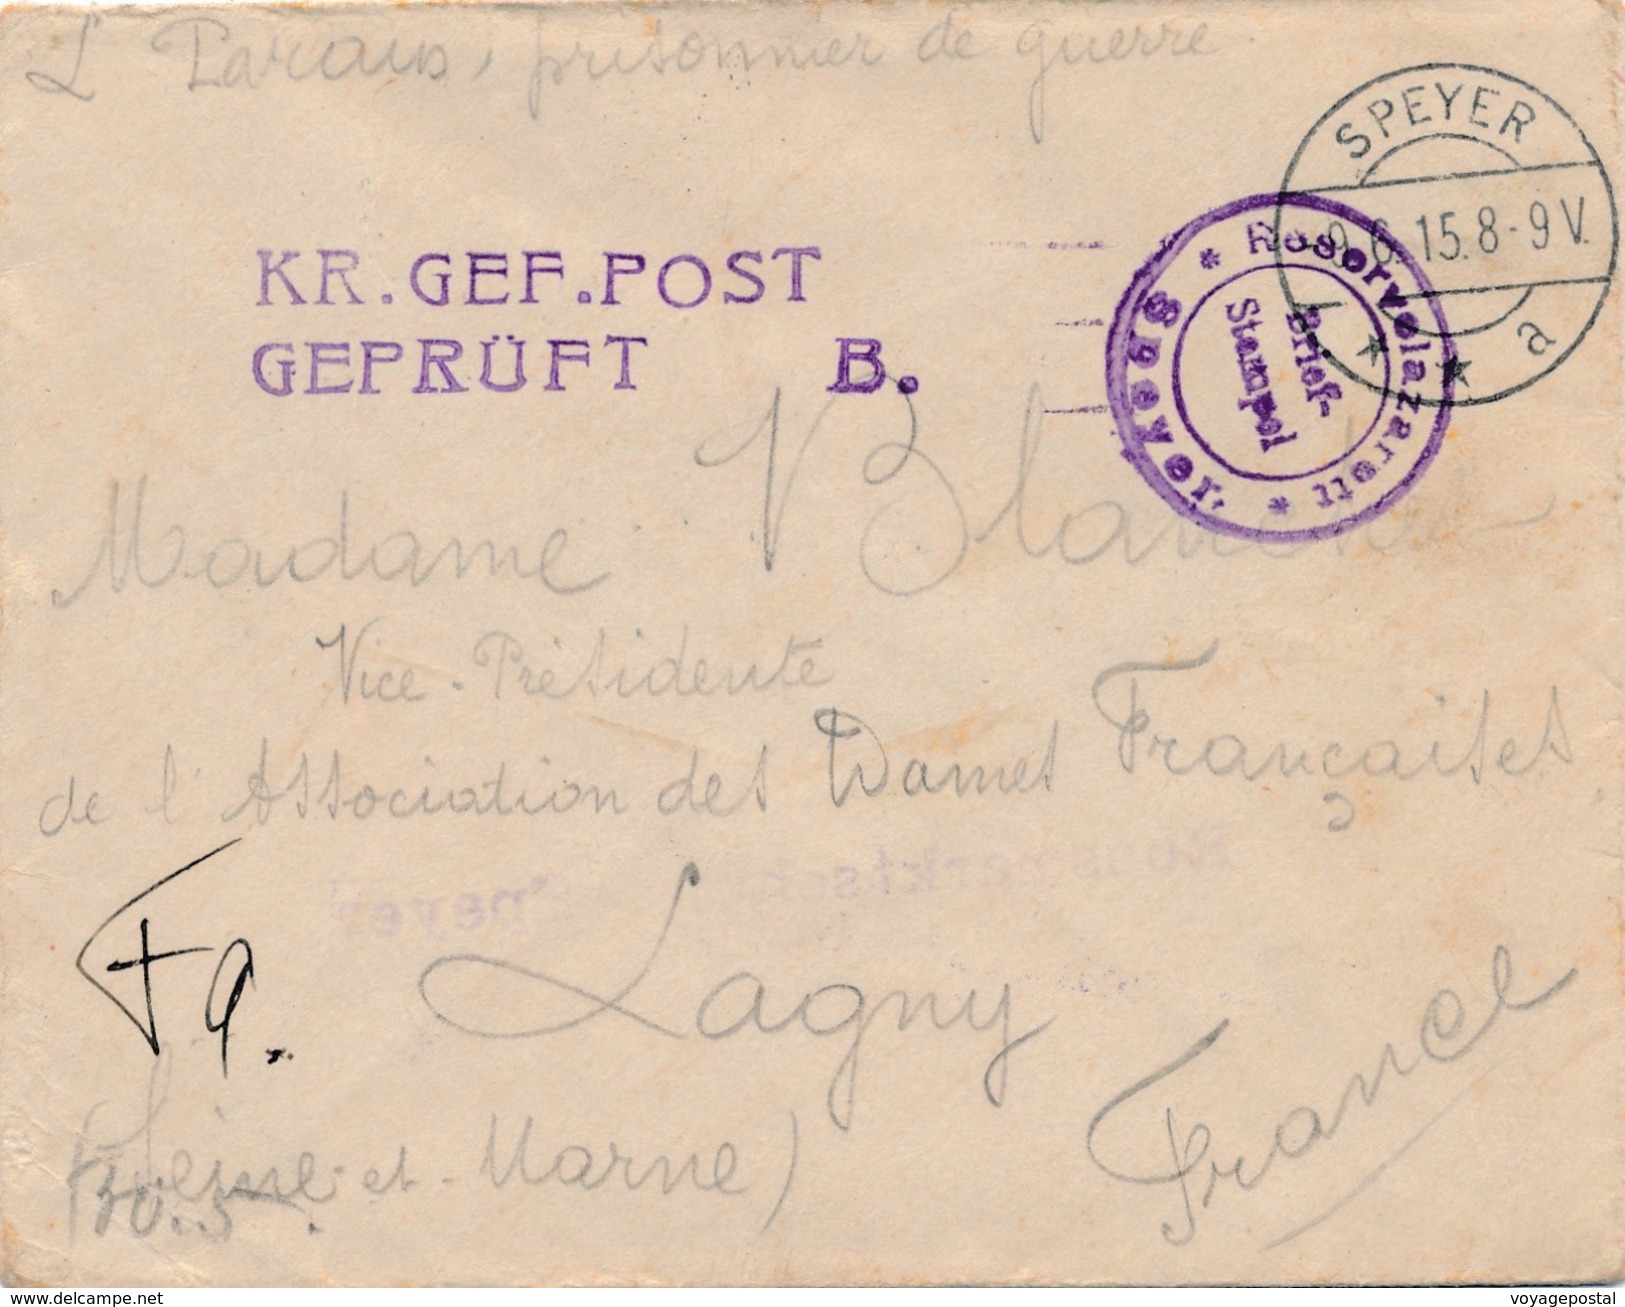 prisonnier de guerre
SPEYER
9.6.15.8-9V.
a
KR.GEF.POST
GEPRÜFT B.
* Reservelazarett * Speyer
Brief-
Stempel
Madame Blanchet
Vice-Présidente
de l'Association des Dames Françaises
Speyer
Lagny
(Seine-et-Marne)
France
30.5.
www.delcampe.net
voyagepostal